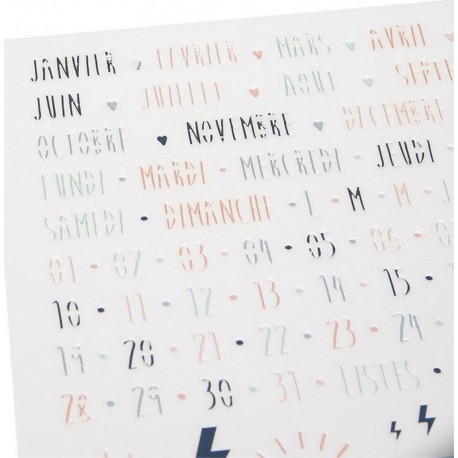 JANVIER FEVRIER MARS AVRIL
JUIN JUILLET AOUT SEPTE
OCTOBRE NOVEMBRE DECEMBRE
LUNDI MARDI MERCREDI JEUDI
SAMEDI DIMANCHE L M M J
01 02 03 04 05 06 0
10 11 12 13 14 15 1
19 20 21 22 23 24
28 29 30 31 LISTES